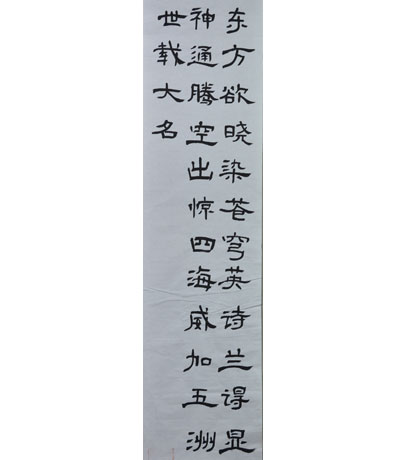 东方欲晓染苍穹英诗兰得显
神通腾空出惊四海威加五洲
世载大名